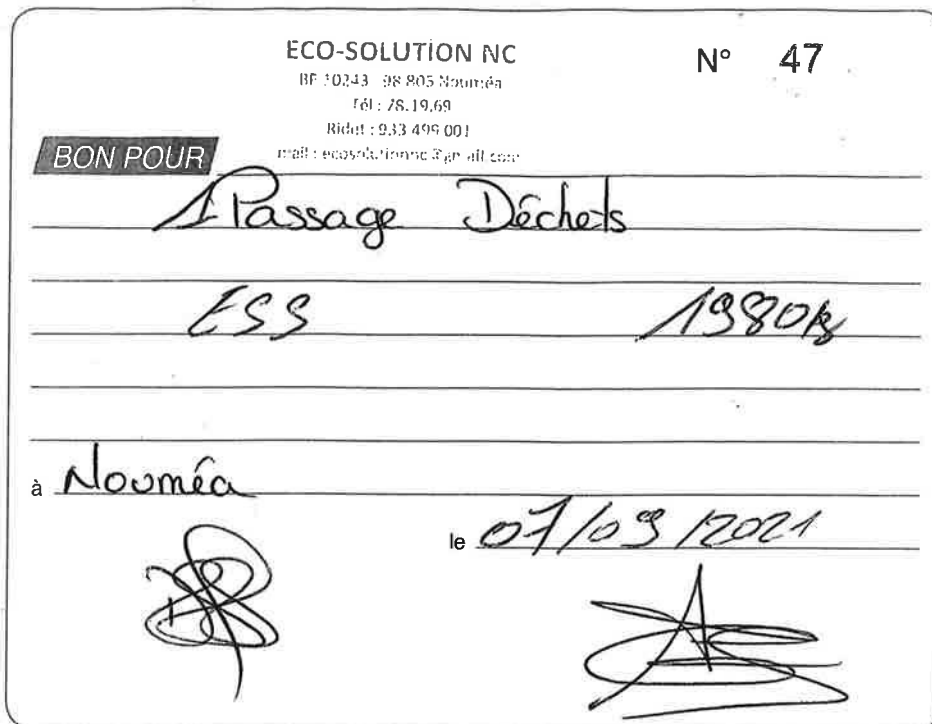 ECO-SOLUTION NC
N° 47
BP 10243 98 805 Nouméa
Tél : 78.19.69
Ridet : 933 499 001
mail : ecosolutionnc@gmail.com
BON POUR
1 Passage Déchets
ESS 1980kg
à Nouméa
le 07/09/2021